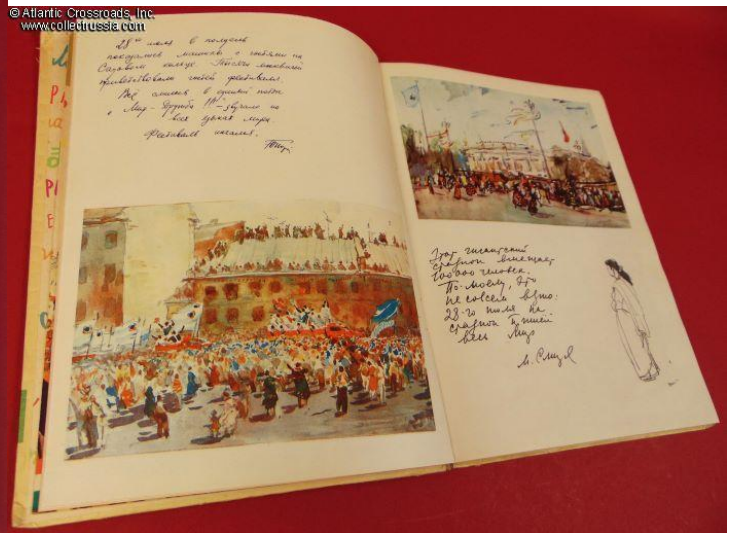 © Atlantic Crossroads, Inc.
www.collectrussia.com
28го июля в полдень
показались машины с гостями на
Садовом кольце. Тысячи москвичей
приветствовали гостей фестиваля.
Всё слилось в единый
"Мир - Дружба!!!" - звучало на
всех языках мира.
Фестиваль начался.
Этот гигантский
стадион вмещает
100000 человек.
По-моему, это
не совсем верно:
28-го июля на
стадион пришёл
весь Мир